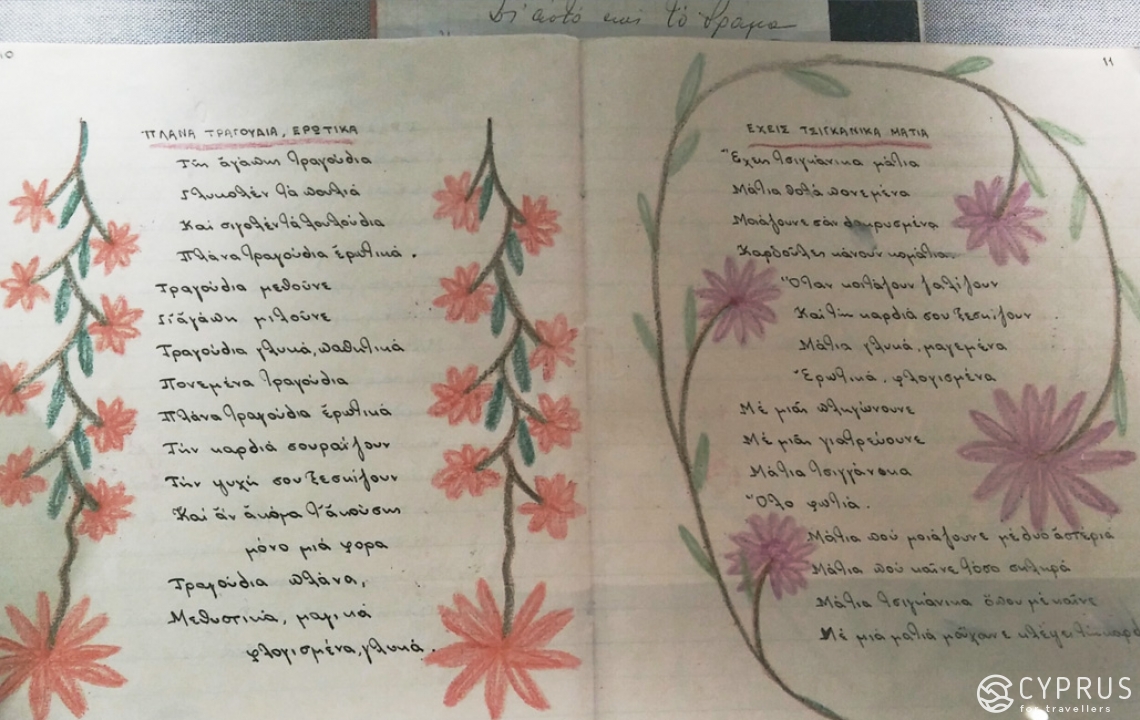 Δι' αὐτό καί τό δράμα
10
ΠΛΑΝΑ ΤΡΑΓΟΥΔΙΑ, ΕΡΩΤΙΚΑ
Τῆς ἀγάπης τραγούδια
Γλυκολέν τά πουλιά
Καί σιγολέν τά λουλούδια
Πλάνα τραγούδια ἐρωτικά.
Τραγούδια μεθοῦνε
Γι' ἀγάπη μιλοῦνε
Τραγούδια γλυκά, παθητικά
Πονεμένα τραγούδια
Πλάνα τραγούδια ἐρωτικά
Τήν καρδιά σου ραΐζουν
Τήν ψυχή σου ξεσκίζουν
Καί ἄν ἀκόμα τ' ἀκούσης
μόνο μιά φορα
Τραγούδια πλάνα,
Μεθυστικά, μαγικά
φλογισμένα, γλυκά.
11
ΕΧΕΙΣ ΤΣΙΓΚΑΝΙΚΑ ΜΑΤΙΑ
Ἔχεις τσιγκάνικα μάτια
Μάτια θολά πονεμένα
Μοιάζουνε σάν δακρυσμένα
Καρδοῦλες κάνουν κομάτια
Ὅταν κοιτάζουν ζαλίζουν
Καί τήν καρδιά σου ξεσκίζουν
Μάτια γλυκά, μαγεμένα
Ἐρωτικά, φλογισμένα
Μέ μιᾶς πληγώνουνε
Μέ μιᾶς γιατρεύουνε
Μάτια τσιγγάνικα
Ὅλο φωτιά.
Μάτια πού μοιάζουνε μέ δυό ἀστέρια
Μάτια πού καῖνε τόσο σκληρά
Μάτια τσιγκάνικα ὅπου μέ καῖνε
Μέ μιά ματιά μοὔχανε κλέψει τήν
CYPRUS
for travellers